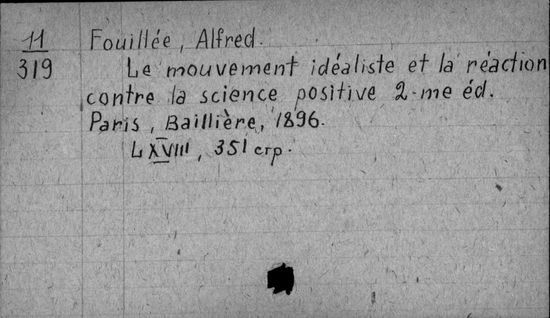 11 Fouillée, Alfred.
319 Le mouvement idéaliste et la réaction
contre la science positive 2-me éd.
Paris, Baillière, 1896.
LXVIII, 351 стр.